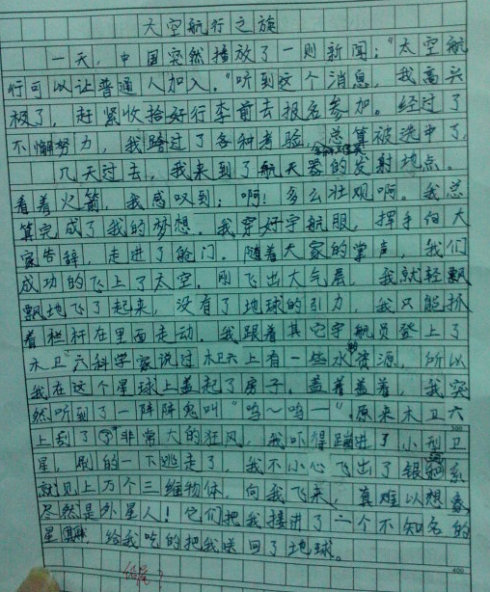 太空航行之旅
一天，中国突然播放了一则新闻："太空航
行可以让普通人加入。"听到这个消息，我高兴
极了，赶紧收拾好行李前去报名参加。经过了
不懈努力，我跨过了各种考验，总算被选中了。
几天过去，我来到了航天器的发射地点。
看着火箭，我感叹到：啊！多么壮观啊。我总
算完成了我的梦想。我穿好宇航服，挥手向大
家告辞，走进了舱门。随着大家的掌声，我们
成功的飞上了太空。刚飞出大气层，我就轻飘
飘地飞了起来，没有了地球的引力，我只能抓
着栏杆在里面走动。我跟着其它宇航员登上了
木卫六科学家说过木卫六上有一些水资源，所以
我在这个星球上盖起了房子。盖着盖着，我突
然听到了一阵阵鬼叫"呜～呜一"原来木卫六
上刮了非常大的狂风，我吓得蹦进了小型卫
星，刷的一下逃走了，我不小心飞出了银河系
就见上万个三维物体，向我飞来，真难以想象
尽然是外星人！它们把我接进了一个不知名的
星，给我吃的把我送回了地球。
300
400
结尾？